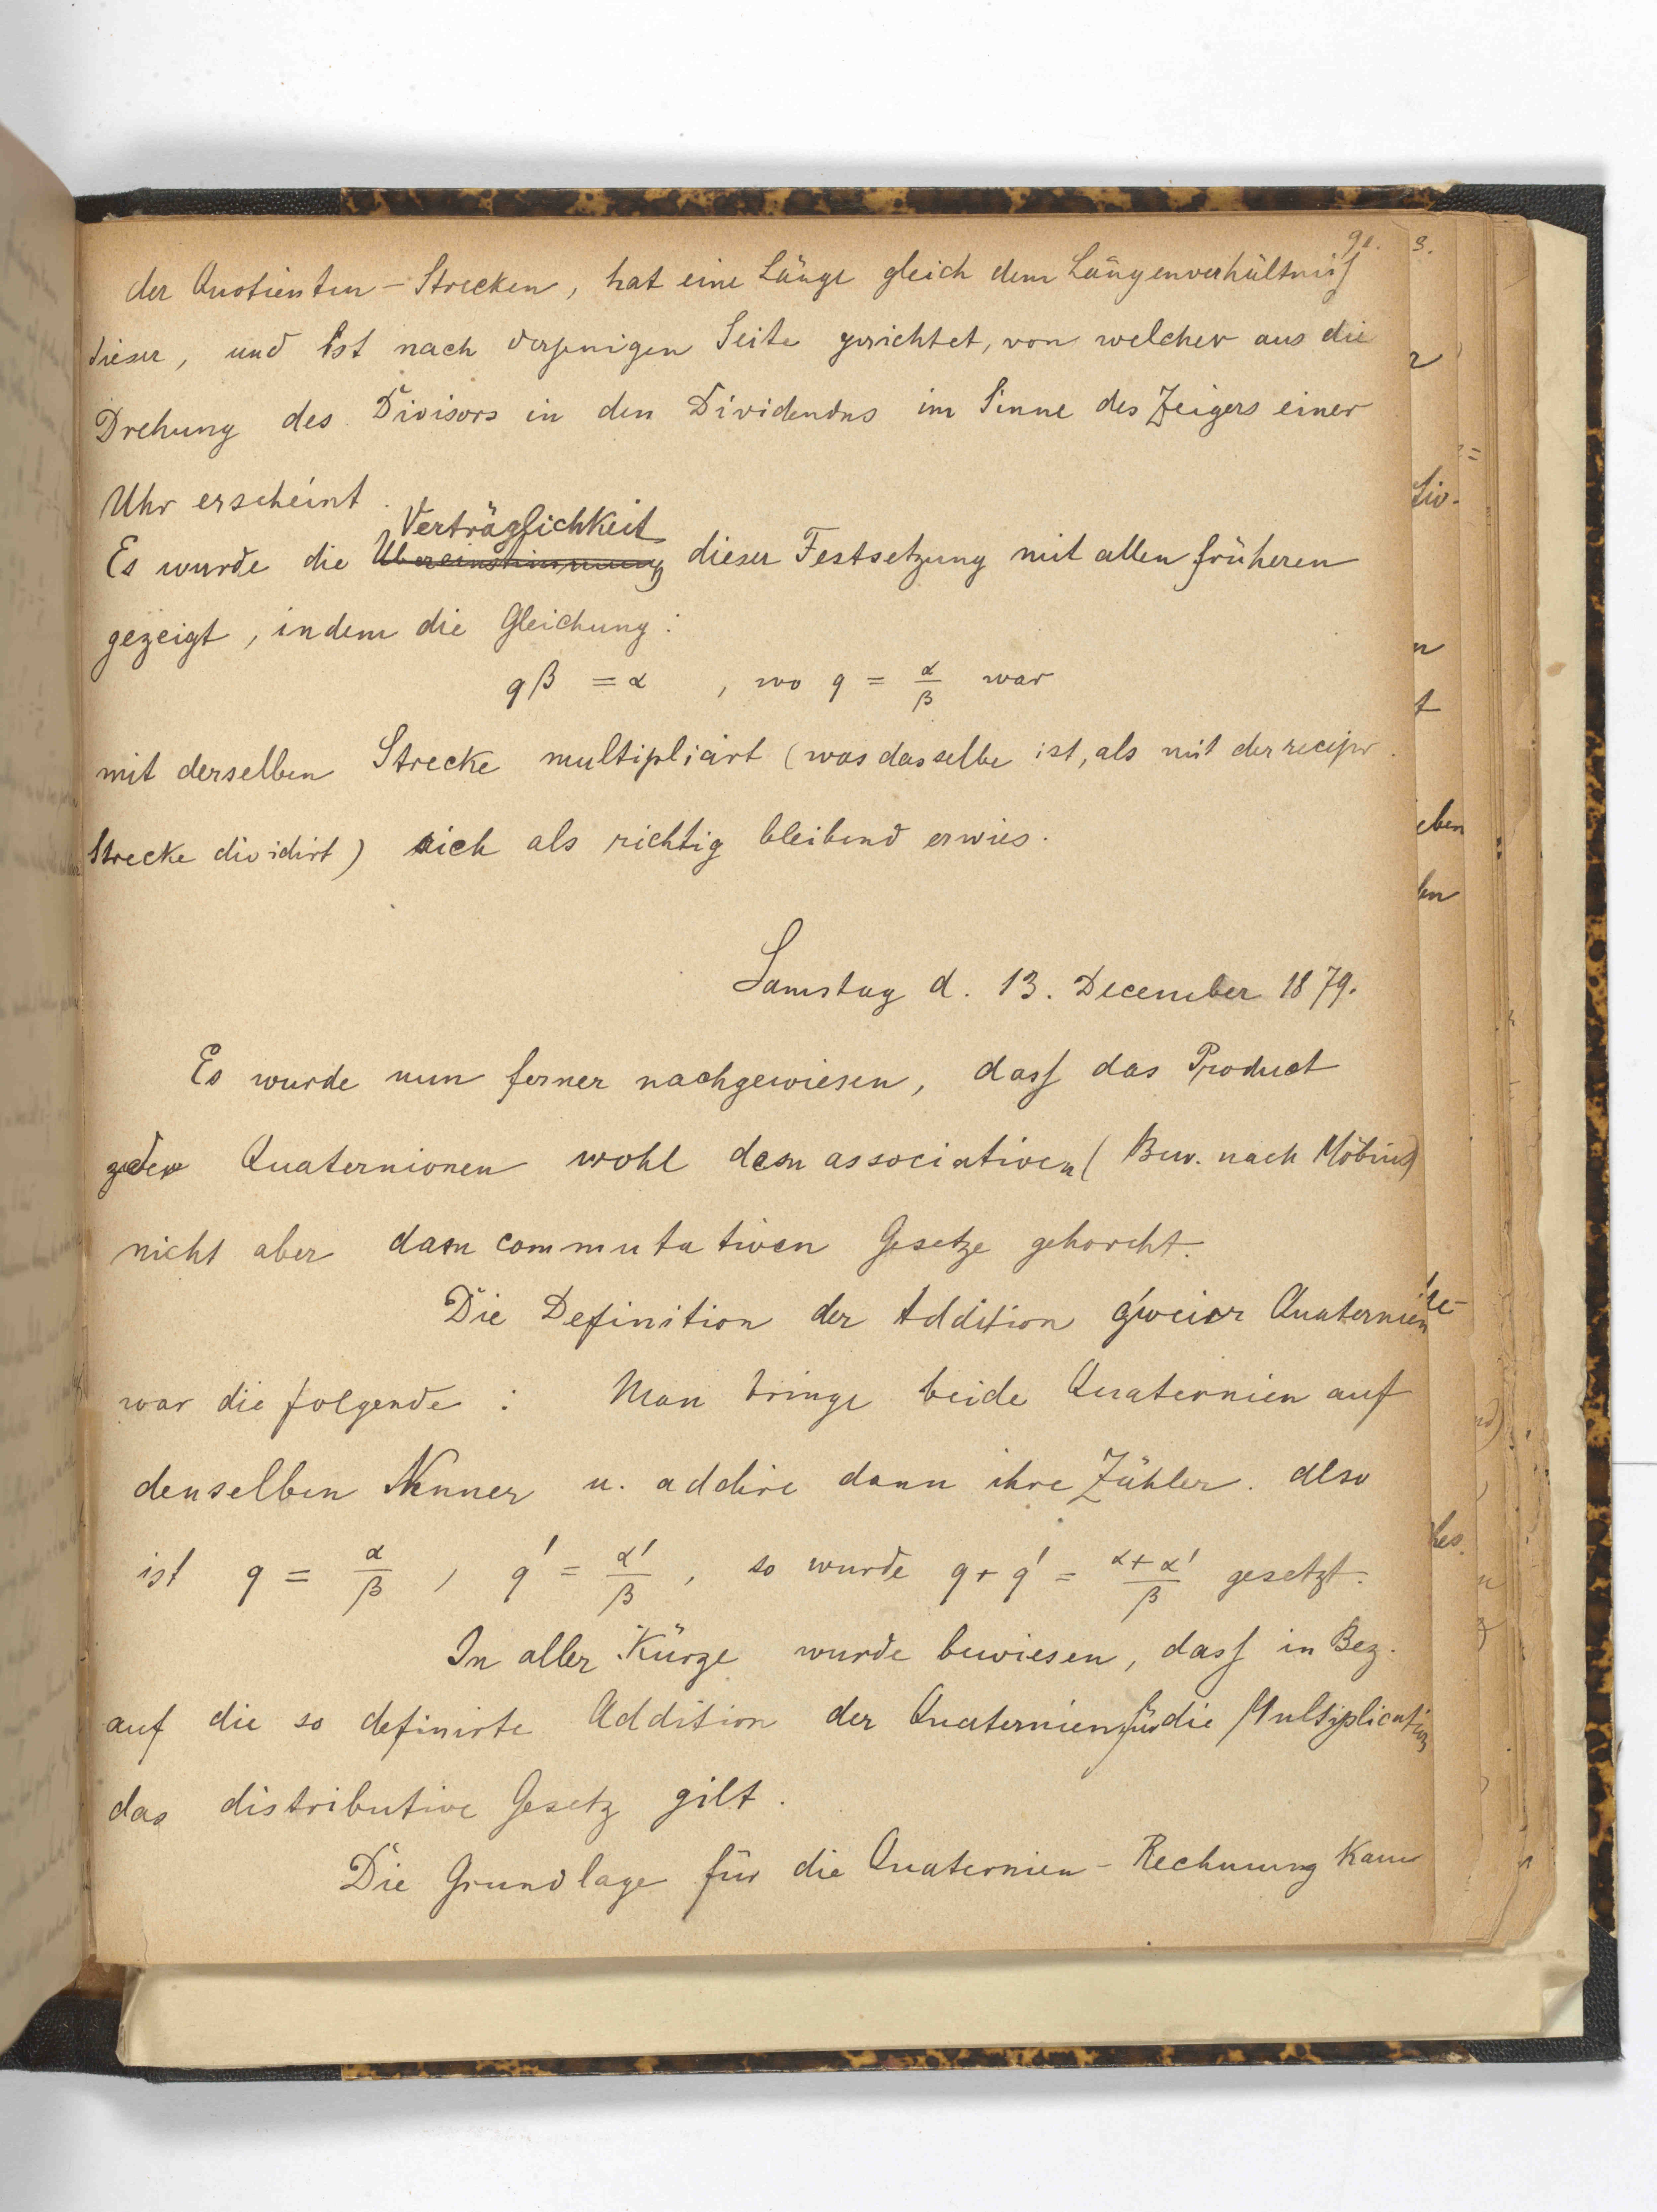 der Quotienten-Strecken, hat eine Länge gleich dem Längenverhältniß
dieser, und ist nach derjenigen Seite gerichtet, von welcher aus die
Drehung des Divisors in den Dividendus im Sinne des Zeigers einer
Uhr erscheint.
Verträglichkeit
Es wurde die Übereinstimmung dieser Festsetzung mit allen früheren
gezeigt, indem die Gleichung:
qβ = α , wo q = α/β war
mit derselben Strecke multiplicirt (was dasselbe ist, als mit der recipr.
Strecke dividirt) sich als richtig bleibend erwies.
Samstag d. 13. December 1879.
Es wurde nun ferner nachgewiesen, daß das Product
der Quaternionen wohl dem associativen (Bew. nach Möbius)
nicht aber dem commutativen Gesetze gehorcht.
Die Definition der Addition zweier Quaternien
war die folgende : Man bringe beide Quaternien auf
denselben Nenner u. addire dann ihre Zähler. also
ist q = α/β , q' = α'/β , so wurde q + q' = α+α'/β gesetzt.
In aller Kürze wurde bewiesen, daß in Bez.
auf die so definirte Addition der Quaternien für die Multiplication
das distributive Gesetz gilt.
Die Grundlage für die Quaternien-Rechnung kann